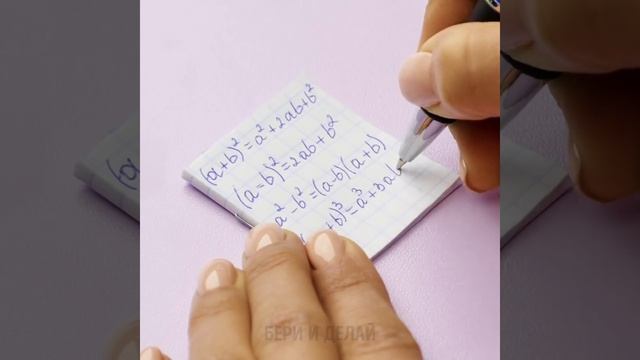 (a+b)²=a²+2ab+b²
(a-b)²=2ab+b²
a²-b²=(a-b)(a+b)
+b)³=a³+3ab
БЕРИ И ДЕЛАЙ